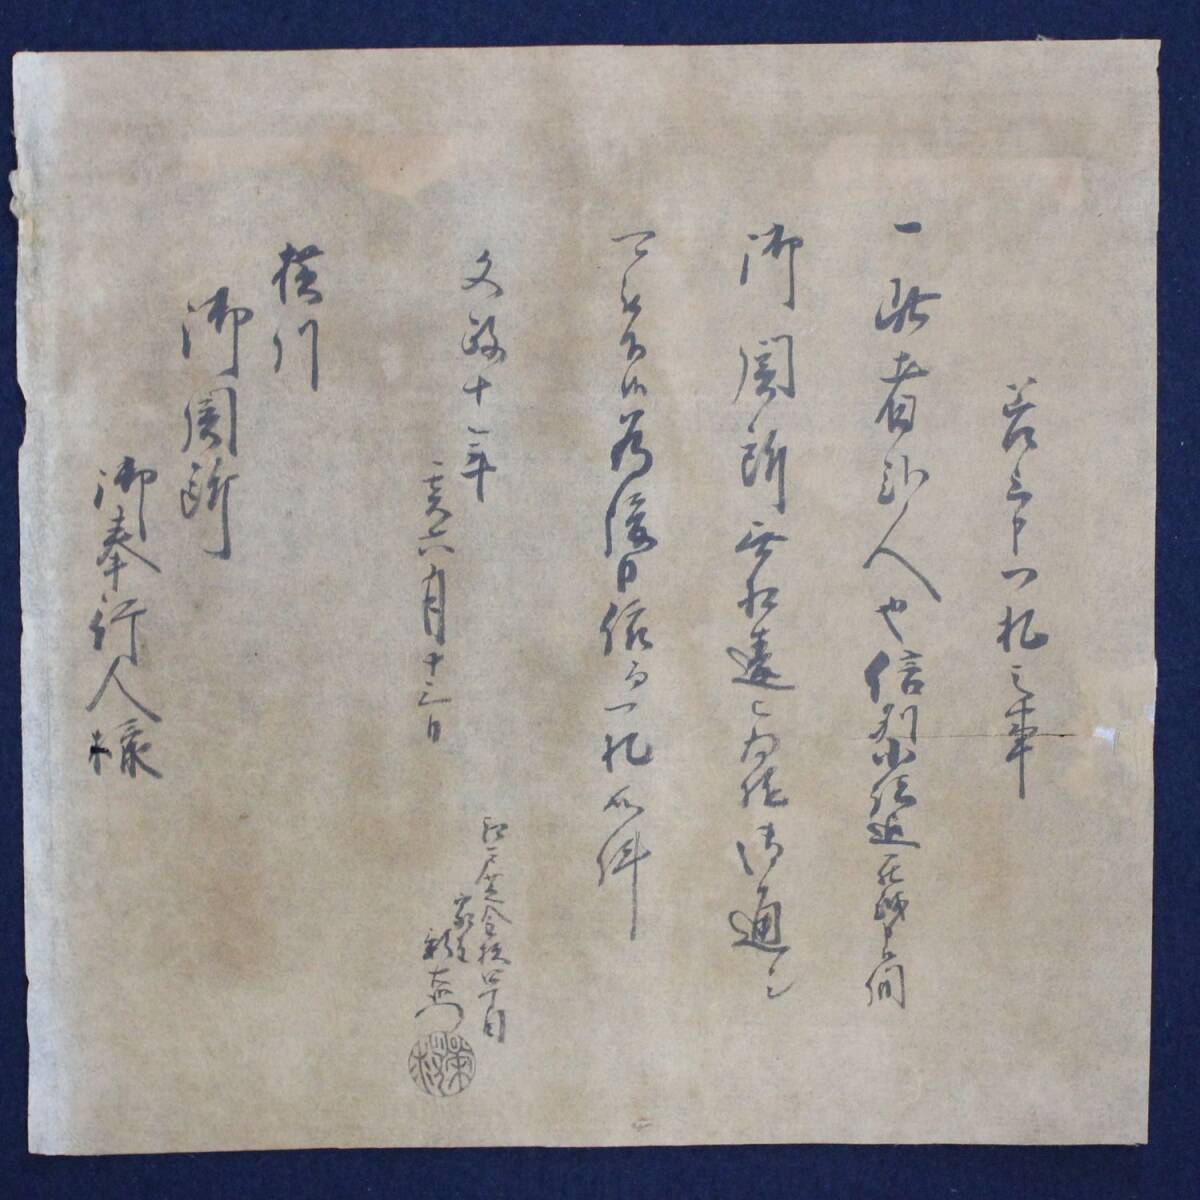 差上申一札之事
一此者弐人也信州小諸迄罷越申候間
御関所無相違被為遊御通シ
可被下候為後日依而一札如件
文政十年
亥六月十三日
江戸芝金杉四丁目
家主
新左衛門
横川
御関所
御奉行人様